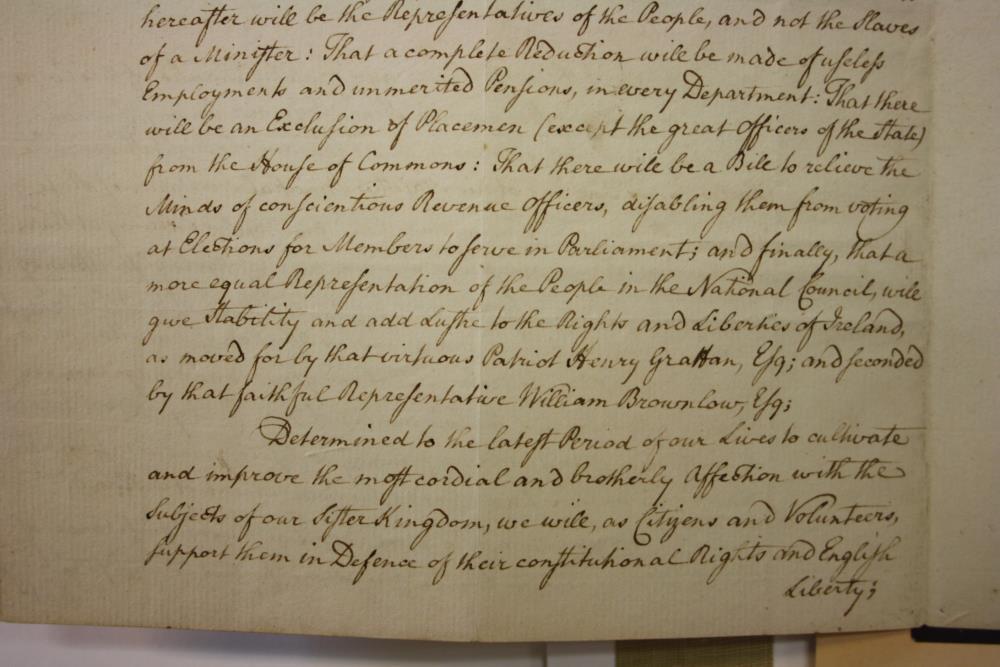 hereafter will be the Representatives of the People, and not the Slaves
of a Minister: That a complete Reduction will be made of useless
Employments and unmerited Pensions, in every Department: That there
will be an Exclusion of Placemen (except the great Officers of the State)
from the House of Commons: That there will be a Bill to relieve the
Minds of conscientious Revenue Officers, disabling them from voting
at Elections for Members to serve in Parliament; and finally, that a
more equal Representation of the People in the National Council, will
give Stability and add Lustre to the Rights and Liberties of Ireland,
as moved for by that virtuous Patriot Henry Grattan, Esq; and seconded
by that faithful Representative William Brownlow, Esq;
Determined to the latest Period of our Lives to cultivate
and improve the most cordial and brotherly Affection with the
Subjects of our Sister Kingdom, we will, as Citizens and Volunteers,
support them in Defence of their constitutional Rights and English
Liberty;